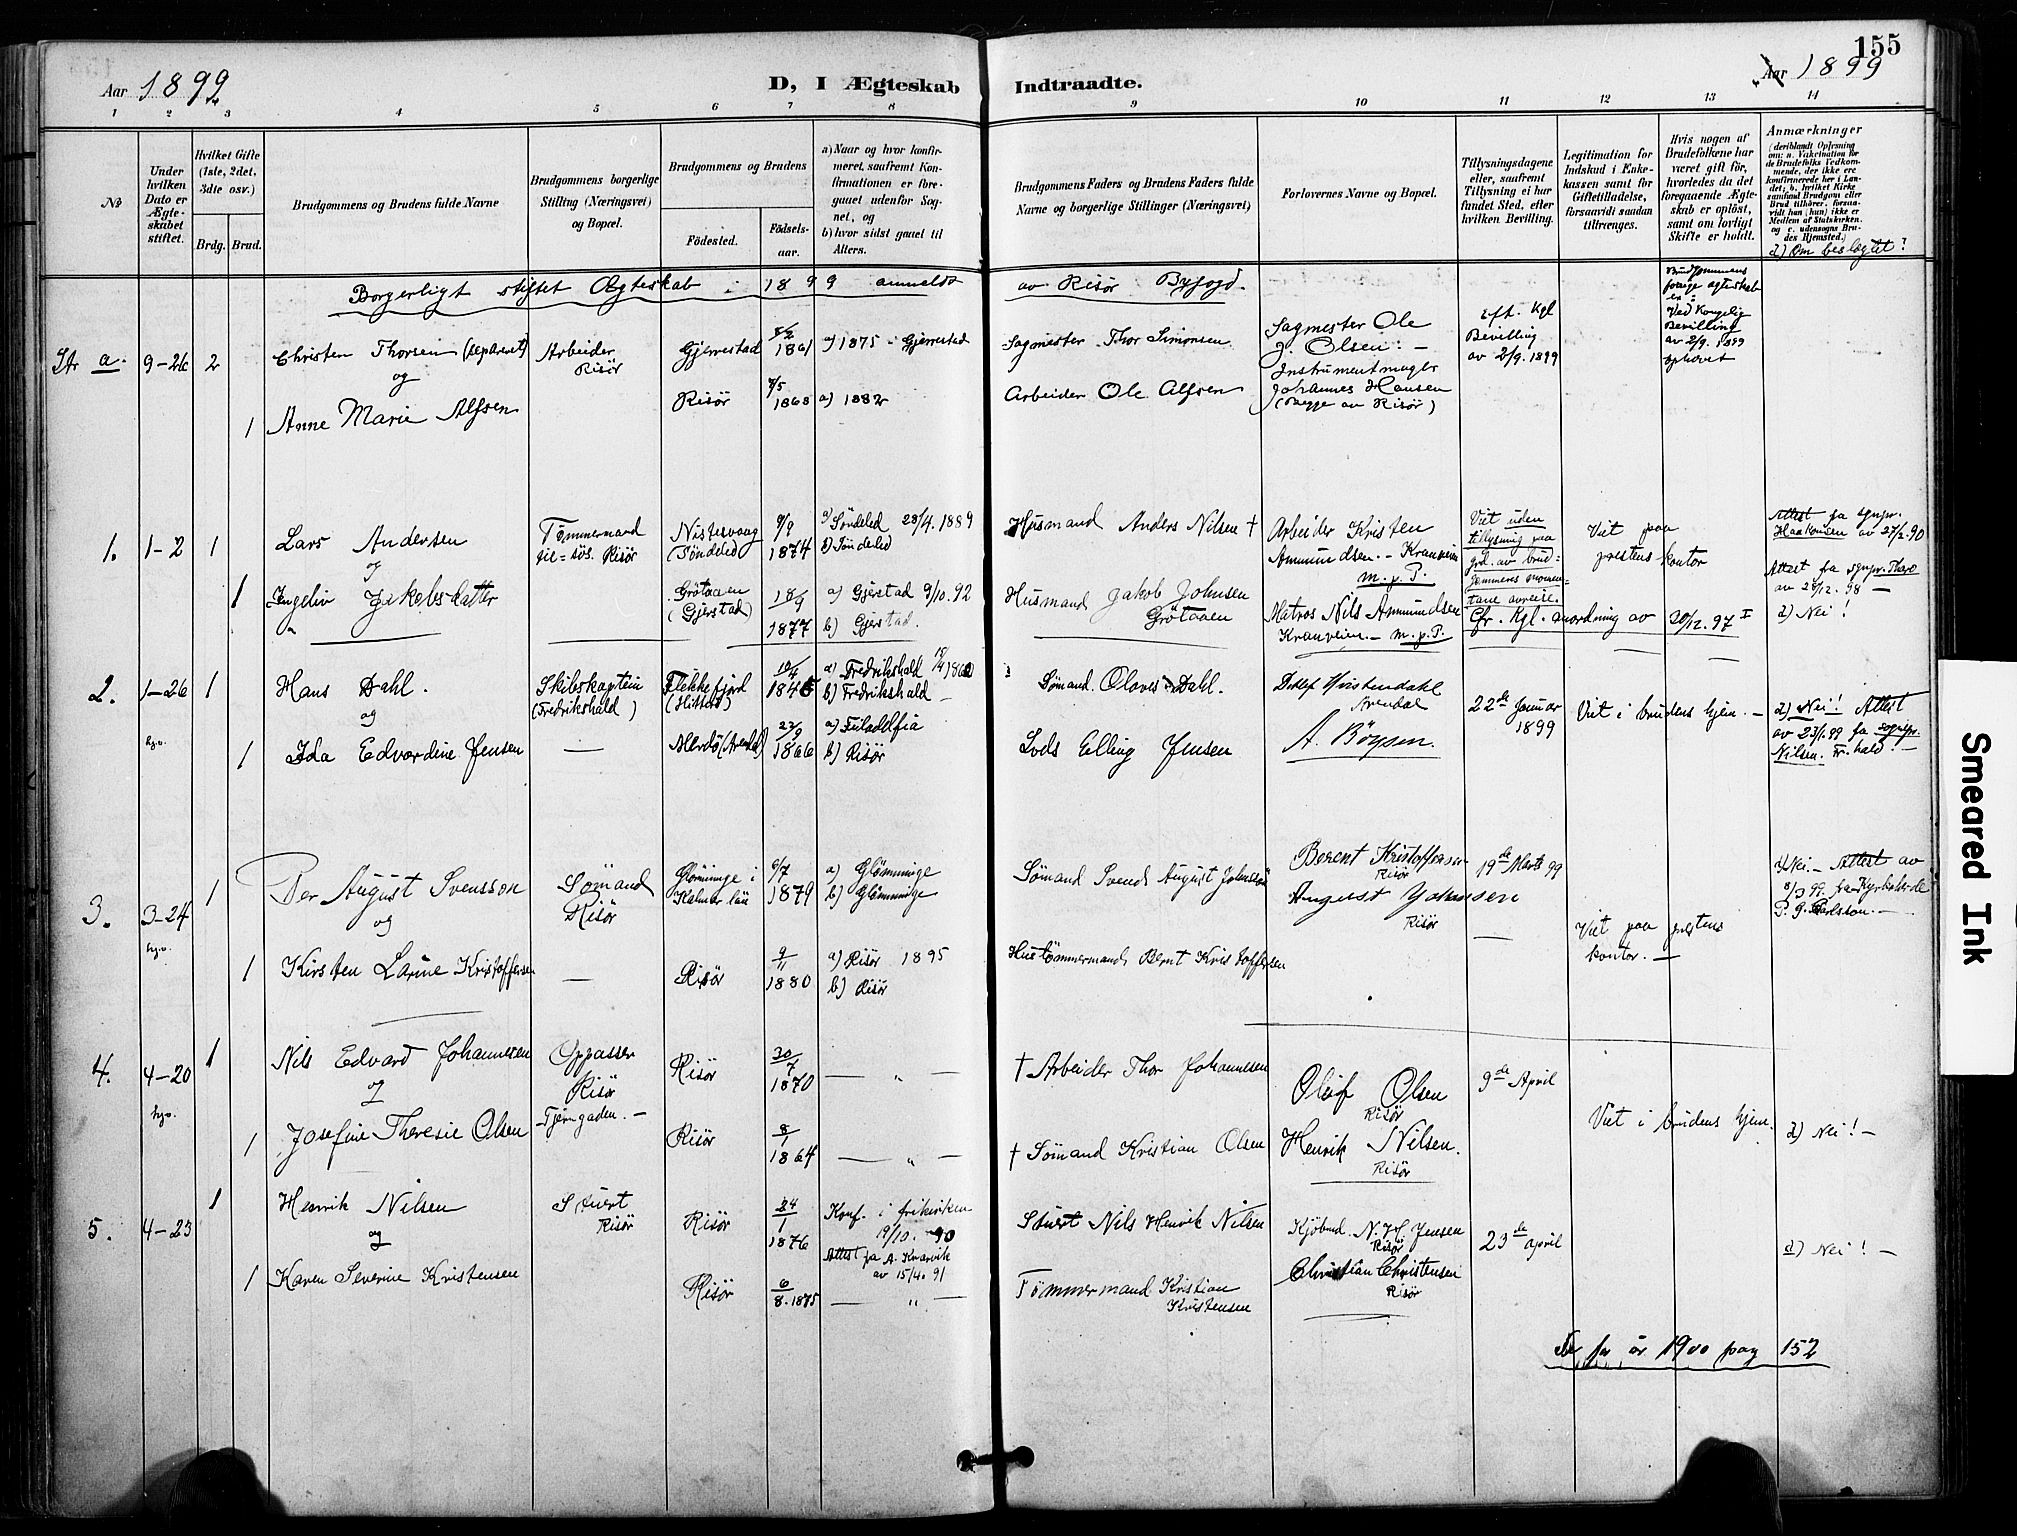 155
Aar 1899
D, I Ægteskab Indtraadte.
Aar 1899
1 2 3 4 5 6 7 8 9 10 11 12 13 14
No
Under hvilken Dato er Ægteskabet stiftet.
Hvilket Gifte (1ste, 2det, 3die osv.)
Brdg. Brud.
Brudgommens og Brudens fulde Navne
Brudgommens borgerlige Stilling (Næringsvei) og Bopæl.
Brudgommens og Brudens
Fødested.
Fødselsaar.
a) Naar og hvor konfirmeret, saafremt Konfirmationen er foregaaet udenfor Sognet, og
b) hvor sidst gaaet til Alters.
Brudgommens Faders og Brudens Faders fulde Navne og borgerlige Stillinger (Næringsvei)
Forlovernes Navne og Bopæl.
Tillysningsdagene eller, saafremt Tillysning ei har fundet Sted, efter hvilken Bevilling.
Legitimation for Indskud i Enkekassen samt for Giftetilladelse, forsaavidt saadan tiltrænges.
Hvis nogen af Brudefolkene har været gift før, hvorledes da det foregaaende Ægteskab er opløst, samt om lovligt Skifte er holdt.
Anmærkninger (deriblandt Oplysning om: a. Vakcination for de Brudefolks Vedkommende, der ikke ere konfirmerede her i Landet; b. hvilket Kirkesamfund Brudgom eller Brud tilhører, forsaavidt han (hun) ikke er Medlem af Statskirken. og c. udensogns Brudes Hjemsted.)
d) Om beslægtet?
Borgerligt stiftet Ægteskab i 1899 anmeldt av Risør Byfogd.
Litr a. 9-26 2 Christen Thorsen (separeret) Arbeider Risør Gjerrestad 1861 a) 1875 - Gjerrestad
Sagmester Thor Simonsen
Sagmester Ole J. Olsen. -
Instrumentmager Johannes Hansen
(Begge av Risør)
eft. Kgl Bevilling av 2/9. 1899
Brudgommens forrige ægteskab er:
Ved Kongelig Bevilling av 2/9. 1899 ophævet
og
1 Anne Marie Alfsen Risør 1868 a) 1882
Arbeider Ole Alfsen
1. 1-2 1 Lars Andersen Tømmermand til-søs. Risør Nistesvaag (Søndeled) 9/9 1874 a) Søndeled 28/4. 1889
b) Søndeled
Husmand Anders Nilsen †
Arbeider Kristen Ammundsen. - Kranveien m. p. P.
Viet uden tillysning paa grd. av brudgommens momentane avreise.
Viet paa prestens kontor
Attest fa sgnpr. Haakonsen av 27/2.90
og
1 Ingeliv Jakobsdatter Grøtaaen (Gjerstad) 18/9 1877 a) Gjerstad 9/10. 92
b) Gjerstad.
Husmand Jakob Johnsen Grøtaaen
Matros Nils Ammundsen Kranveien. - m. p. P.
Cfr. Kgl. anordning av 30/12. 97 I
Attest fa sgnpr. Thore av 29/12. 98 -
d) Nei!
2. 1-26 1 Hans Dahl. Skibskaptein (Fredrikshald) Flekkefjord (Hitterø) 10/4 1845 a) Fredrikshald
b) Fredrikshald -
Sømand Olaves Dahl.
Detlef Kristendahl Arendal
22de Januar 1899
Viet i brudens hjem. -
d) Nei! Attest av 23/1.99 fa sognpr. Nilsen. Fr.hald. -
hj.v.
og
1 Ida Edvardine Jensen - Merdø (Arendal) 22/9 1866 a) Filadelfia
b) Risør
Lods Elling Jensen
A. Böysen.
3. 3-24 1 Per August Svensson Sømand Risør Glömminge i Kalmar län 6/7 1879 a) Glömminge
b) Glömminge
Sømand Svend August Johnsson
Berent Kristoffersen Risør
August Johnsen Risør
19de Marts 99
d) Nei. - Attest av 8/3 99. fra Kyrkoherde P. G. Carlsson. -
hj.v.
og
1 Kirsten Larine Kristoffersen - Risør 9/11 1880 a) Risør 1895
b) Risør
Hustømmermand Bernt Kristoffersen
-
Viet paa prestens kontor. -
4. 4-20 1 Nils Edvard Johannesen Oppasser Risør Tjenngaden. - Risør 30/7 1870 - " -
† Arbeider Thor Johannesen
Oluf Olsen Risør
9de April
Viet i brudens hjem.
d) Nei! -
hj.v.
og
1 Josefine Theresie Olsen Risør 8/1 1864 - " -
† Sømand Kristian Olsen
Henrik Nilsen. Risør
5. 4-23 1 Henrik Nilsen Stuert Risør Risør 24/1 1876 Konf. i frikirken 19/10. -90
Attest fa A. Kvarvik av 15/4. 91
Stuert Nils Henrik Nilsen
Kjøbmd. N. H. Jensen Risør
23de april
d) Nei! -
og
1 Karen Severine Kristensen Risør 6/8. 1875 - " -
Tømmermand Kristian Kristensen
Christian Christensen Risør
Se for år 1900 pag 152
Smeared Ink